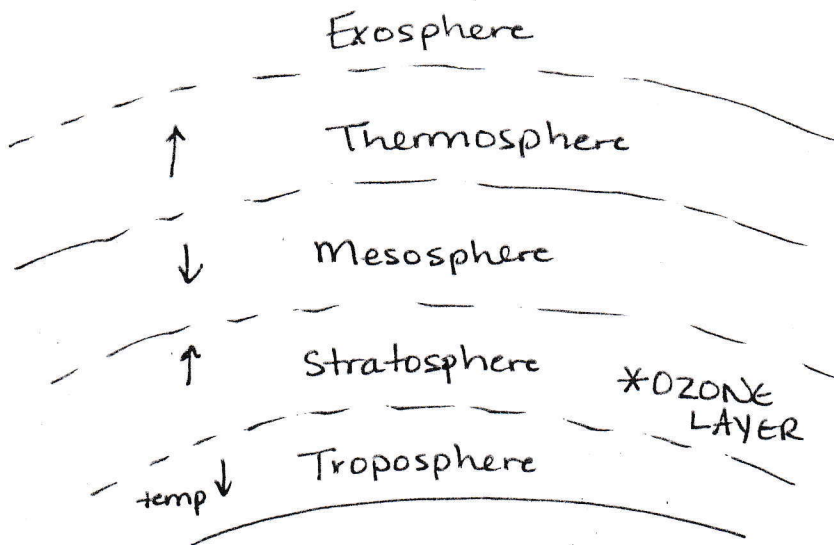 Exosphere
Thermosphere
Mesosphere
Stratosphere
*OZONE
LAYER
Troposphere
temp